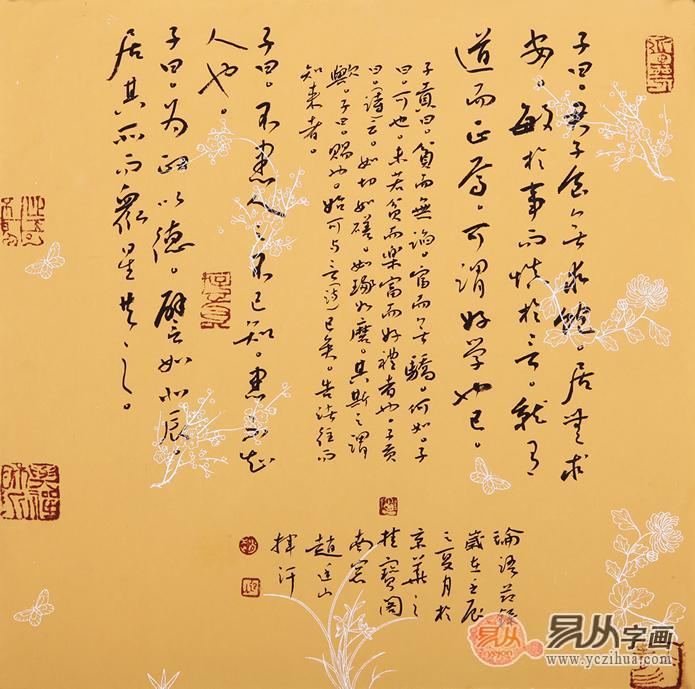 子曰。君子食无求飽。居無求
安。敏於事而慎於言。就有
道而正焉。可謂好学也已。
子貢曰。貧而無諂。富而无驕。何如。子
曰。可也。未若貧而樂富而好禮者也。子貢
曰。詩云。如切如磋。如琢如磨。其斯之謂
歟。子曰。賜也。始可与言詩已矣。告諸往而
知来者。
子曰。不患人之不己知。患不知
人也。
子曰。为政以德。譬如北辰。
居其所而衆星共之。
論語節錄
歲在壬辰
之夏月於
京華之
桂寶閣
南窓
趙 山
揮汗
易从
易从字画
www.yczihua.com